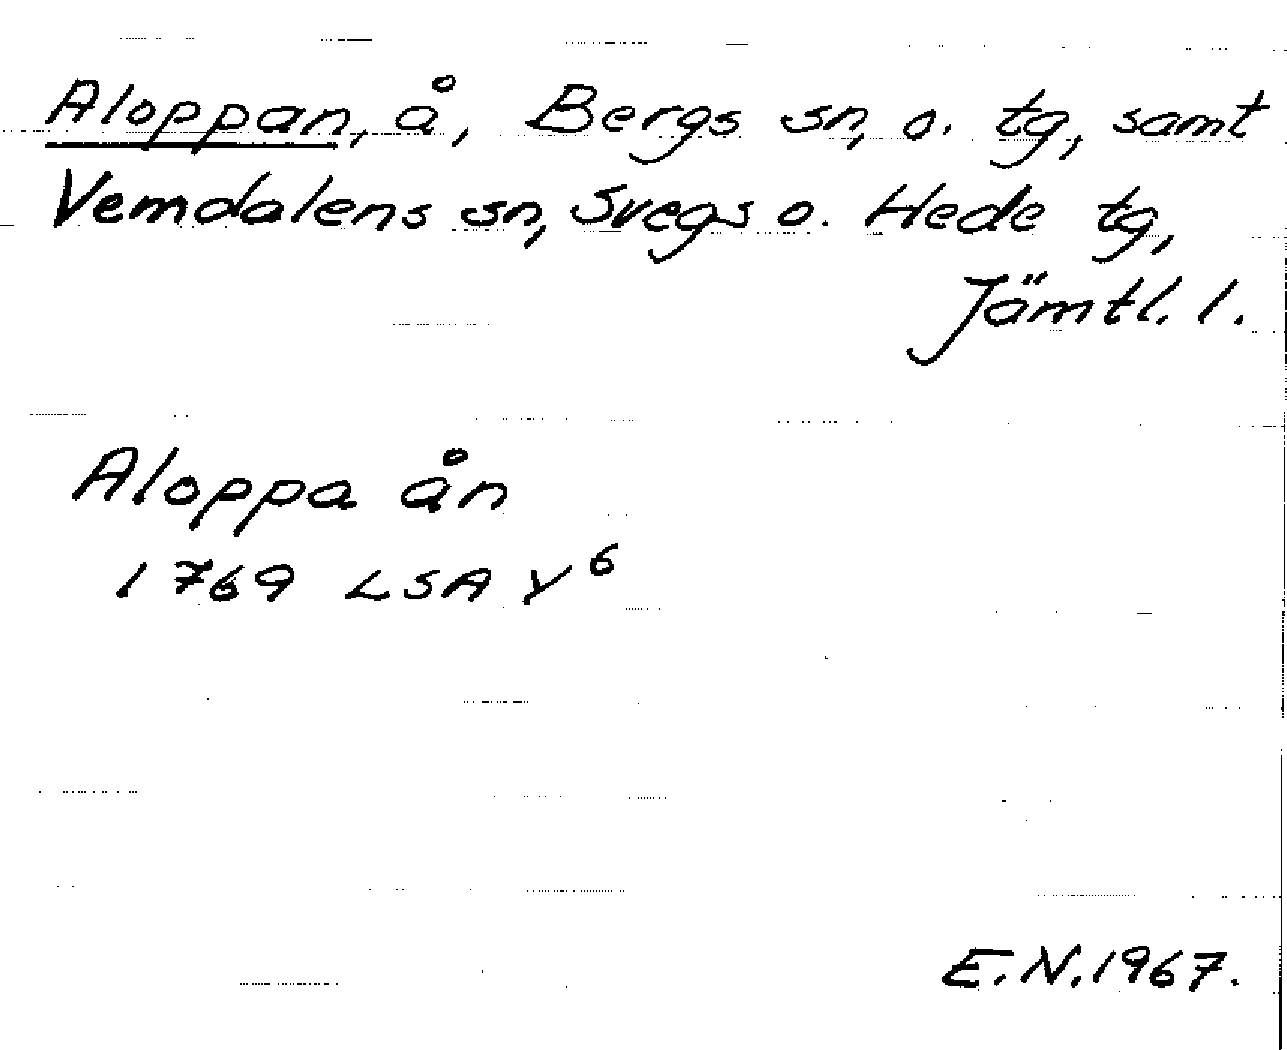 Aloppan, å, Bergs sn, o. tg, samt
Vemdalens sn, Svegs o. Hede tg,
Jämtl. l.
Aloppa ån
1769 LSA Y⁶
E.N. 1967.